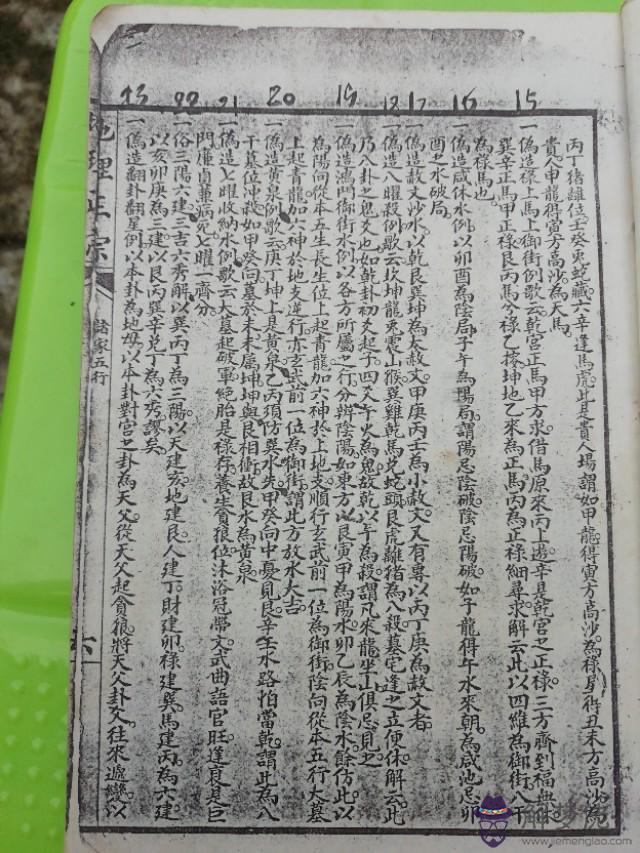 15 16 17 18 19 20 21 22 23
丙丁猪雞位壬癸兔蛇藏六辛逢馬虎此是貴人場謂如甲龍得寅方高沙為祿星得丑未方高沙為
貴人申龍得寅方高沙為天馬
一偽造祿上馬上御街例歌云乾宮正馬甲方求借馬原來丙上遊辛是乾宮之正祿三方齊到福無休
巽辛正馬甲正祿艮丙馬兮祿乙接坤地乙來為正馬丙為正祿細尋求解云此以四維為御街八干
為祿馬也
一偽造咸休水例以卯酉為陰局子午為陽局謂陽忌陰破陰忌陽破如子龍得午水來朝為咸池忌卯
酉之水破局
一偽造赦文沙水以乾艮巽坤為大赦文甲庚丙壬為小赦文又有專以丙丁庚為赦文者
一偽造八曜殺例歌云坎坤龍兔震山猴巽雞乾馬兌蛇頭艮虎離猪為八殺墓宅逢之立便休解云此
乃八卦之鬼爻也如乾卦初爻起子四爻午火為鬼故乾以午為殺謂凡來龍坐山俱忌見之
一偽造鴻門御街水例以各方所屬之行分辨陰陽如東方以艮寅甲為陽水卯乙辰為陰水餘仿此以
為陽向從本五生長生位上起青龍加六神於上地支順行玄武前一位為御街陰向從本五行大墓
上起青龍加六神於地支逆行亦玄武前一位為御街謂此方放水大吉
一偽造黃泉例歌云庚丁坤上是黃泉乙丙須防巽水先甲癸向中憂見艮辛壬水路怕當乾謂此為八
干墓位冲殺如甲癸向墓於未未属坤坤與艮相衝故艮水為黃泉
一偽造七曜收納水例歌云大墓起破軍絕胎是祿存養生貪狼位沐浴冠帶文武曲語官旺逢衰是巨
門廉貞兼病死七曜一齊分
一俗三陽六建三吉六秀解以巽丙丁為三陽以天建亥地建艮人建丁財建卯祿建巽馬建丙為六建
以亥卯庚為三建以艮丙巽辛兌丁為六秀謬矣
一偽造翻卦翻星倒以本卦為地母以本卦對宮之卦為天父從天父起貪狼將天父卦爻往來遞變以
地理正宗
諸家五行
六
www.jiemengliao.com